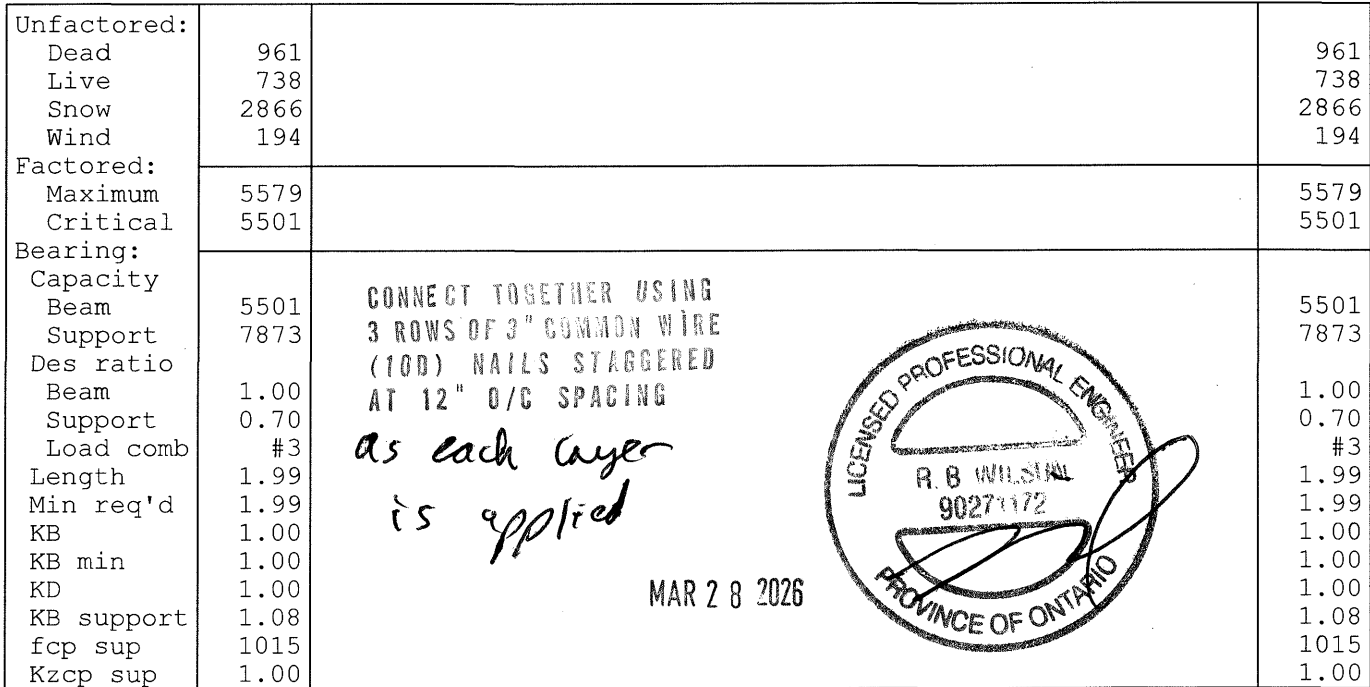 Unfactored:
Dead 961 961
Live 738 738
Snow 2866 2866
Wind 194 194
Factored:
Maximum 5579 5579
Critical 5501 5501
Bearing:
Capacity
Beam 5501 5501
Support 7873 7873
Des ratio
Beam 1.00 1.00
Support 0.70 0.70
Load comb #3 #3
Length 1.99 1.99
Min req'd 1.99 1.99
KB 1.00 1.00
KB min 1.00 1.00
KD 1.00 1.00
KB support 1.08 1.08
fcp sup 1015 1015
Kzcp sup 1.00 1.00
CONNECT TOGETHER USING
3 ROWS OF 3" COMMON WIRE
(10D) NAILS STAGGERED
AT 12" O/C SPACING
as each layer
is applied
MAR 28 2026
LICENSED PROFESSIONAL ENGINEER
R. B WILSON
90271172
PROVINCE OF ONTARIO